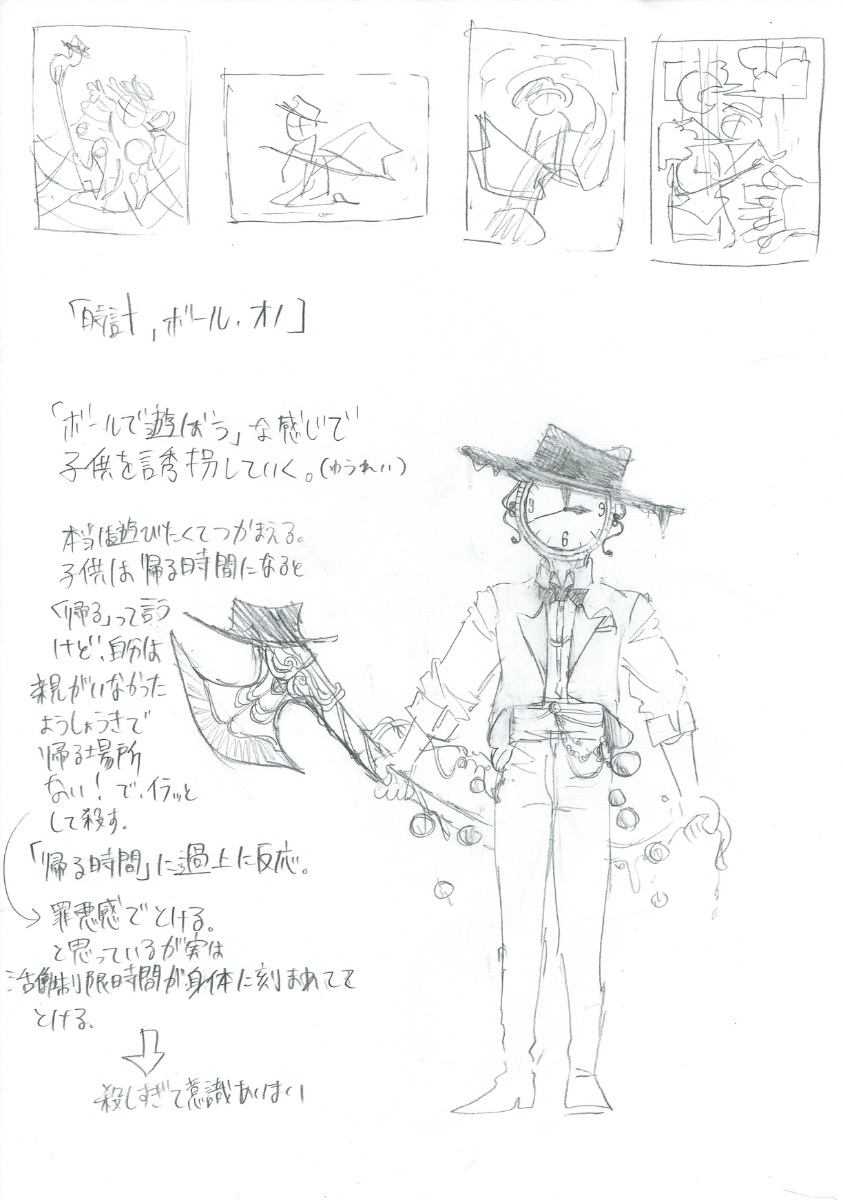 「時計,ボール,オノ」
「ボールで遊ぼう」な感じで
子供を誘拐していく。(ゆうれい)
本当は遊びたくてつかまえる。
子供は帰る時間になると
「帰る」って言う
けど、自分は
親がいなかった
ようしょうきで
帰る場所
ない!で、イラッと
して殺す。
「帰る時間」に過上に反応。
罪悪感でとける。
と思っているが実は
活動制限時間が身体に刻まれてて
とける。
殺しすぎて意識あいまい
9
3
6